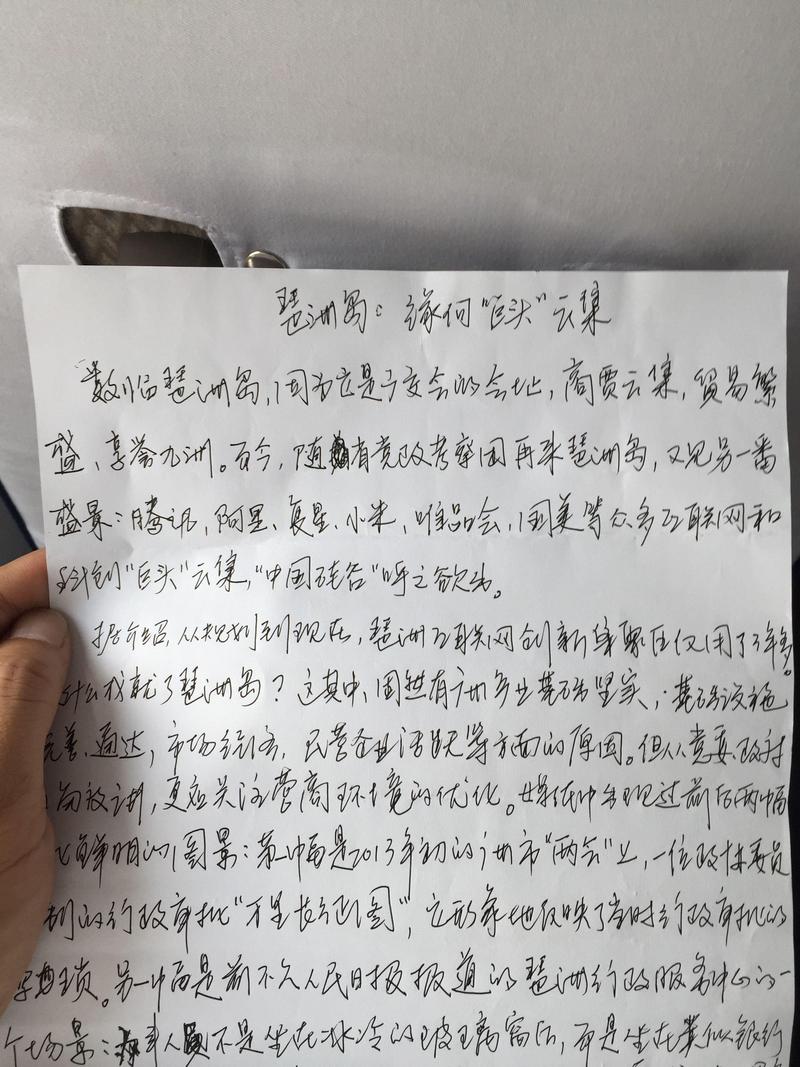 琶洲岛：缘何“巨头”云集
数临琶洲岛，因为它是广交会的会址，商贾云集，贸易繁
盛，享誉九洲。而今，随省党政考察团再来琶洲岛，又见另一番
盛景：腾讯，阿里，复星，小米，唯品会，国美等众多互联网和
科创“巨头”云集，“中国硅谷”呼之欲出。
据介绍，从规划到现在，琶洲互联网创新集聚区仅用了3年多。
什么成就了琶洲岛？这其中，固然有广州产业基础坚实，基础设施
完善、通达，市场经济，民营企业活跃等方面的原因。但从党委、政府
角度讲，更应关注营商环境的优化。媒体中出现过前后两幅
鲜明的图景：第一幅是2013年初的广州市“两会”上，一位政协委员
制的行政审批“万里长征图”，它形象地反映了当时行政审批的
琐。另一幅是前不久人民日报报道的琶洲行政服务中心的一
个场景：办事人员不是坐在冰冷的玻璃窗后，而是坐在类似银行